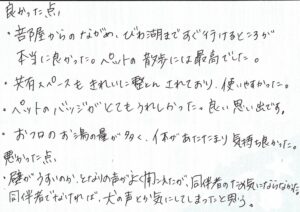 良かった点、
・部屋からのながめ、びわ湖まですぐ行けるところが
本当に良かった。ペットの散歩には最高でした。
・共有スペースもきれいに整とんされており、使いやすかった。
・ペットのバッジがとてもうれしかった。良い思い出です。
・おフロのお湯の量が多く、体があたたまり気持ち良かった。
悪かった点、
・壁がうすいのか、となりの声がよく聞こえたが、同伴者のため気にならなかった
同伴者でなければ、犬の声とか気にしてしまったと思う。